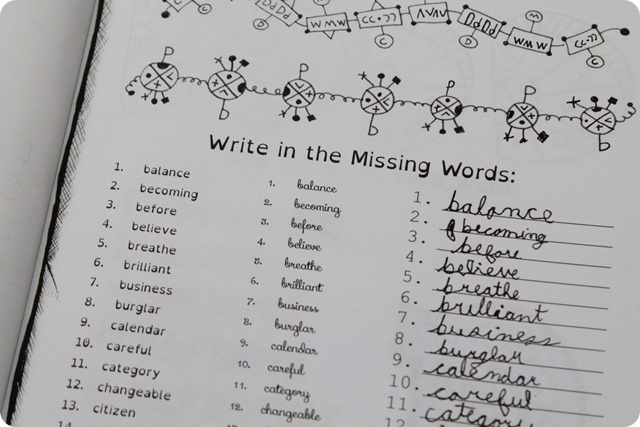 Write in the Missing Words:
1. balance
2. becoming
3. before
4. believe
5. breathe
6. brilliant
7. business
8. burglar
9. calendar
10. careful
11. category
12. changeable
13. citizen
1. balance
2. becoming
3. before
4. believe
5. breathe
6. brilliant
7. business
8. burglar
9. calendar
10. careful
11. category
12. changeable
1. balance
2. becoming
3. before
4. believe
5. breathe
6. brilliant
7. business
8. burglar
9. calendar
10. careful
11. category